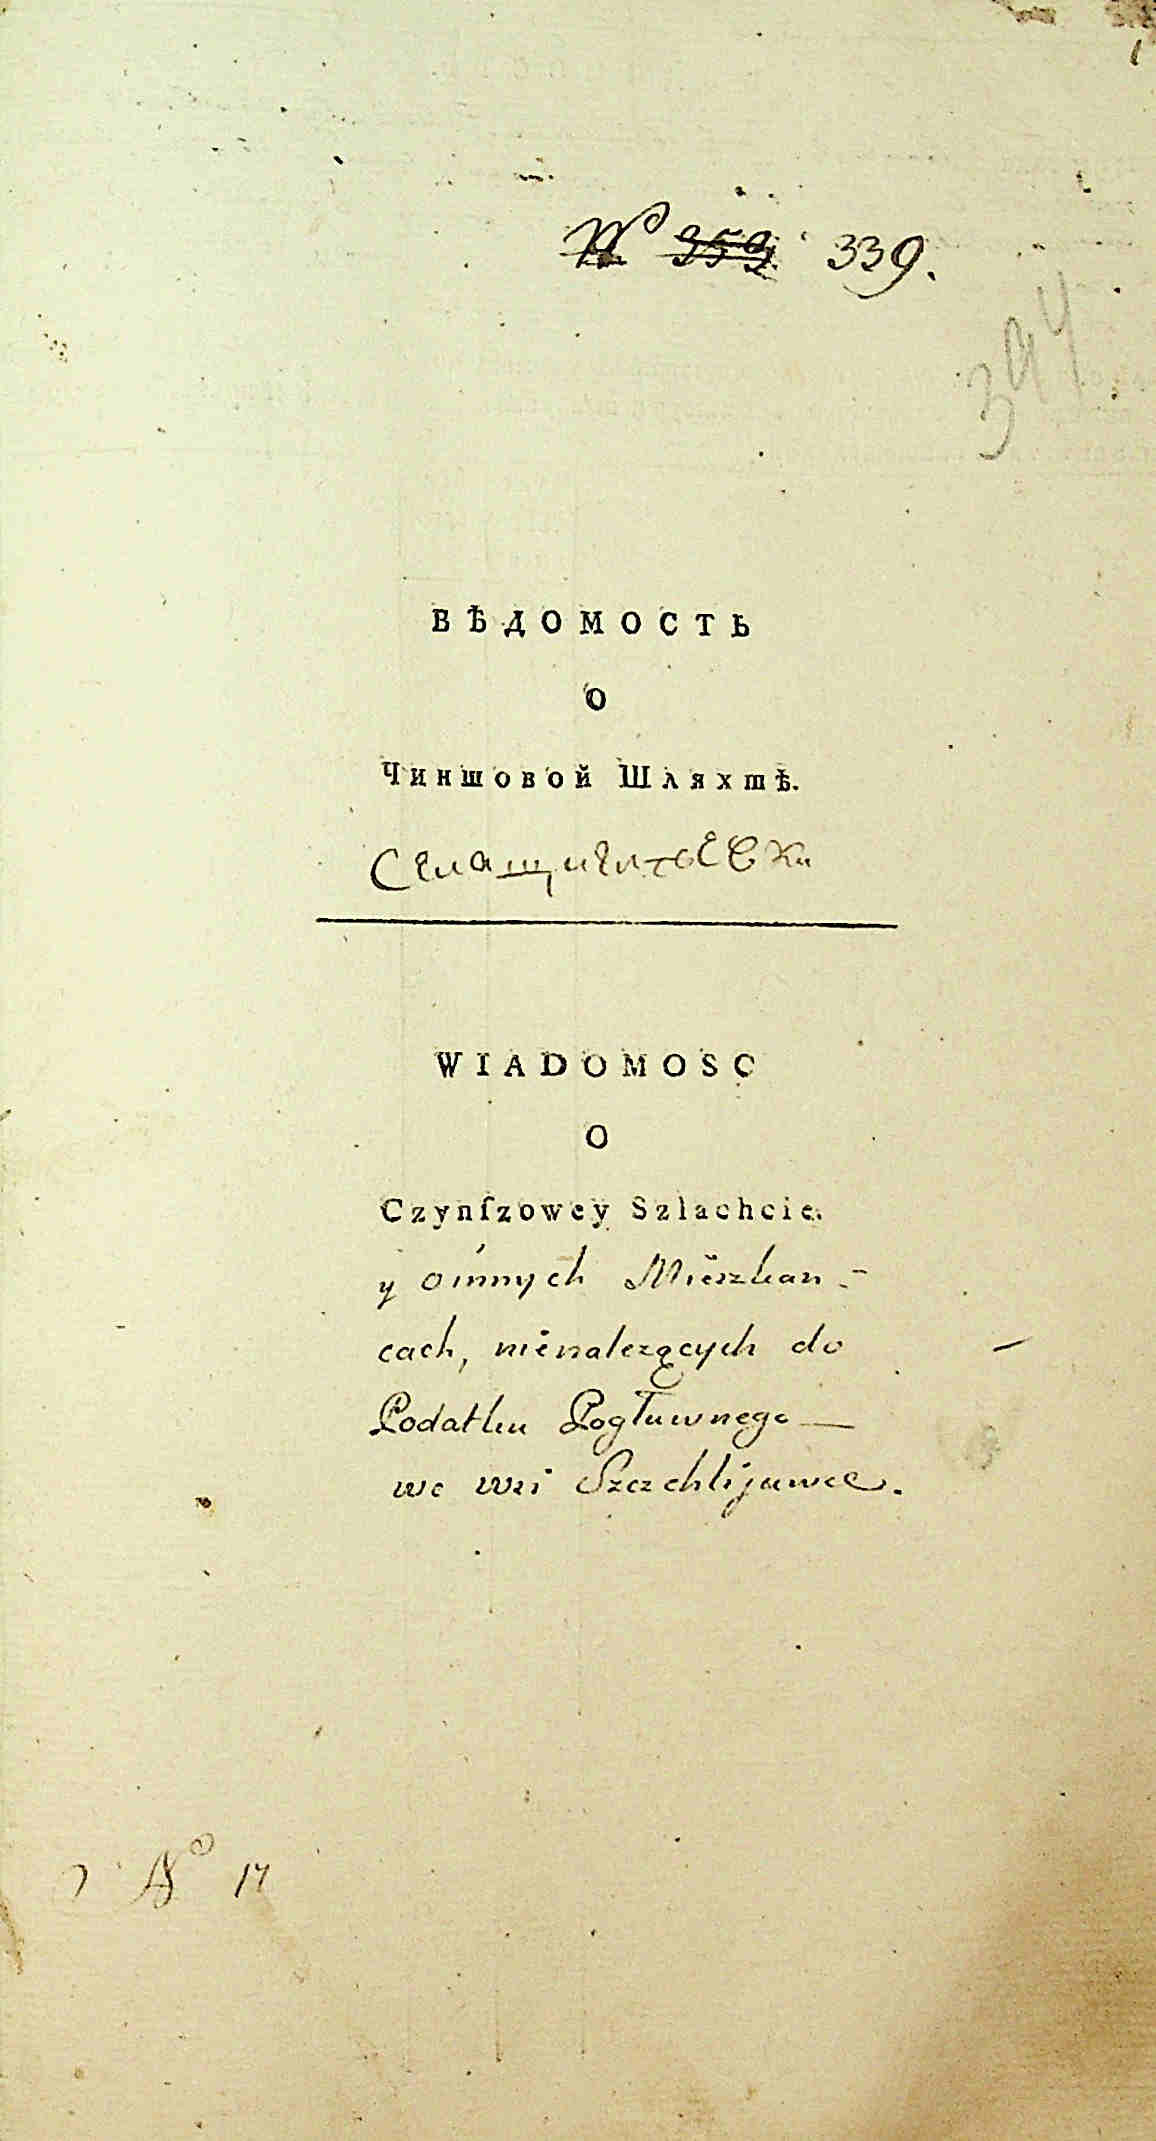 No 353 339.
394
ВѢДОМОСТЬ
О
Чиншовой Шляхтѣ.
WIADOMOSC
O
Czynſzowey Szlachcie.
y oinnych Mieszkan-
cach, nienalezących do
Podatku Pogłuwnego —
we wsi Szczehlijuwce.
No 17